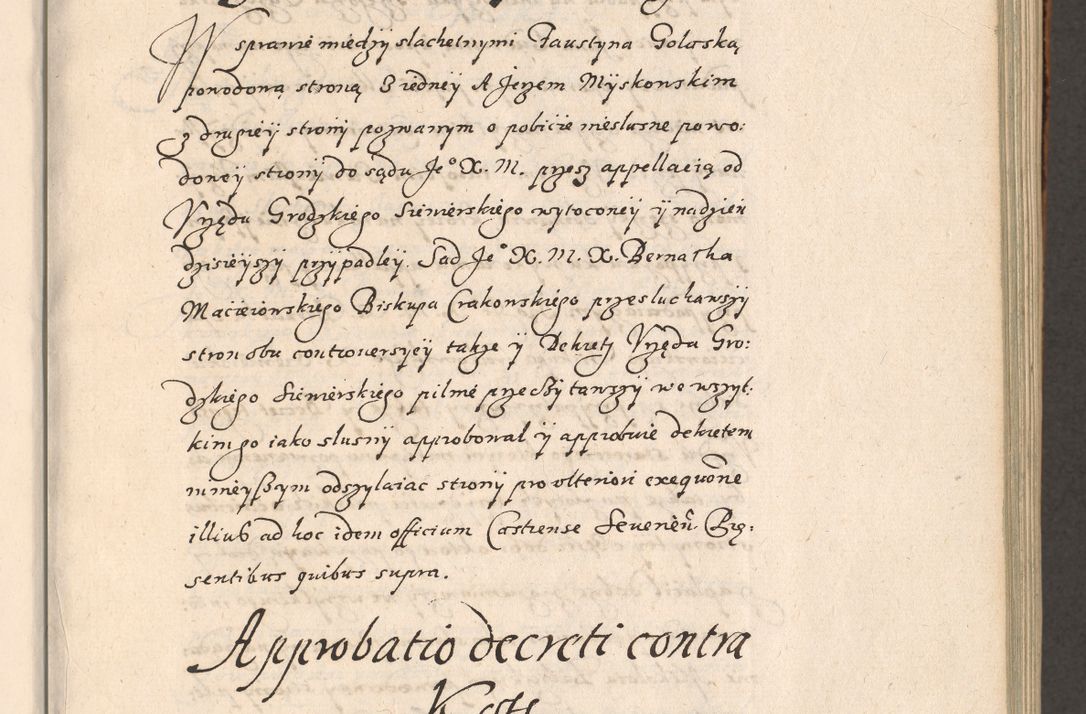 W sprawie miedzy slachetnymi Faustyna Golwską
powodową stroną z iedney A Jerzem Myskowskim
z drugiey strony pozwanym o pobicie niesłusne powo:
dowey strony do sądu Je° X. M. przez appellacią od
Vrzędu Grodzkiego Siewierskiego wytoconey y na dzień
dzisieyszy przypadłey. Sąd Je° X. M. X. Bernatha
Macieiowskiego Biskupa Crakowskiego przesłuchawszy
stron obu controwersyey także y Dekrety Vrzędu Gro:
dzkiego Siewierskiego pilnie przeczytawszy we wszyt:
kim go iako słusny approbował y approbuie dekretem
ninieyszym odszylaiąc strony pro vlteriori exequõne
illius ad hoc idem officium Castrense Severień Prę:
sentibus quibus supra.
Approbatio decreti contra